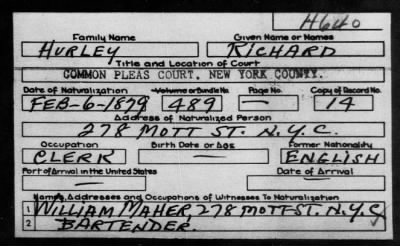 H640
Family Name Given Name or Names
HURLEY RICHARD
Title and Location of Court
COMMON PLEAS COURT, NEW YORK COUNTY.
Date of Naturalization Volume or Bundle No. Page No. Copy of Record No.
FEB-6-1879 489 — 14
Address of Naturalized Person
278 MOTT ST. N.Y.C.
Occupation Birth Date or Age Former Nationality
CLERK ENGLISH
Port of Arrival in the United States Date of Arrival
Names, Addresses and Occupations of Witnesses To Naturalization
1 WILLIAM MAHER, 278 MOTT ST. N.Y.C.
2 BARTENDER.